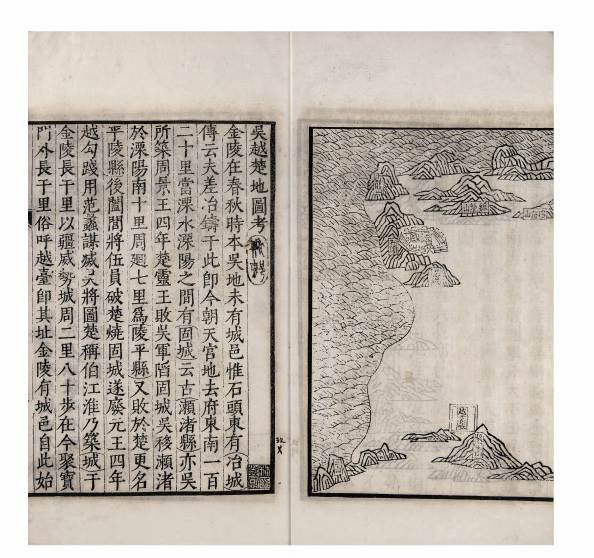 吳越楚地圖考
金陵在春秋時本吳地未有城邑惟石頭東有冶城
傳云夫差冶鑄于此即今朝天宮地去府東南一百
二十里當溧水溧陽之間有固城云古瀨渚縣亦吳
所築周景王四年楚靈王敗吳軍陷固城吳移瀨渚
於溧陽南十里周廻七里爲陵平縣又敗於楚更名
平陵縣後闔閭將伍員破楚燒固城遂廢元王四年
越勾踐用范蠡謀滅吳將圖楚稱伯江淮乃築城于
金陵長干里以疆威勢城周二里八十步在今聚寶
門外長干里俗呼越臺即其址金陵有城邑自此始
越城